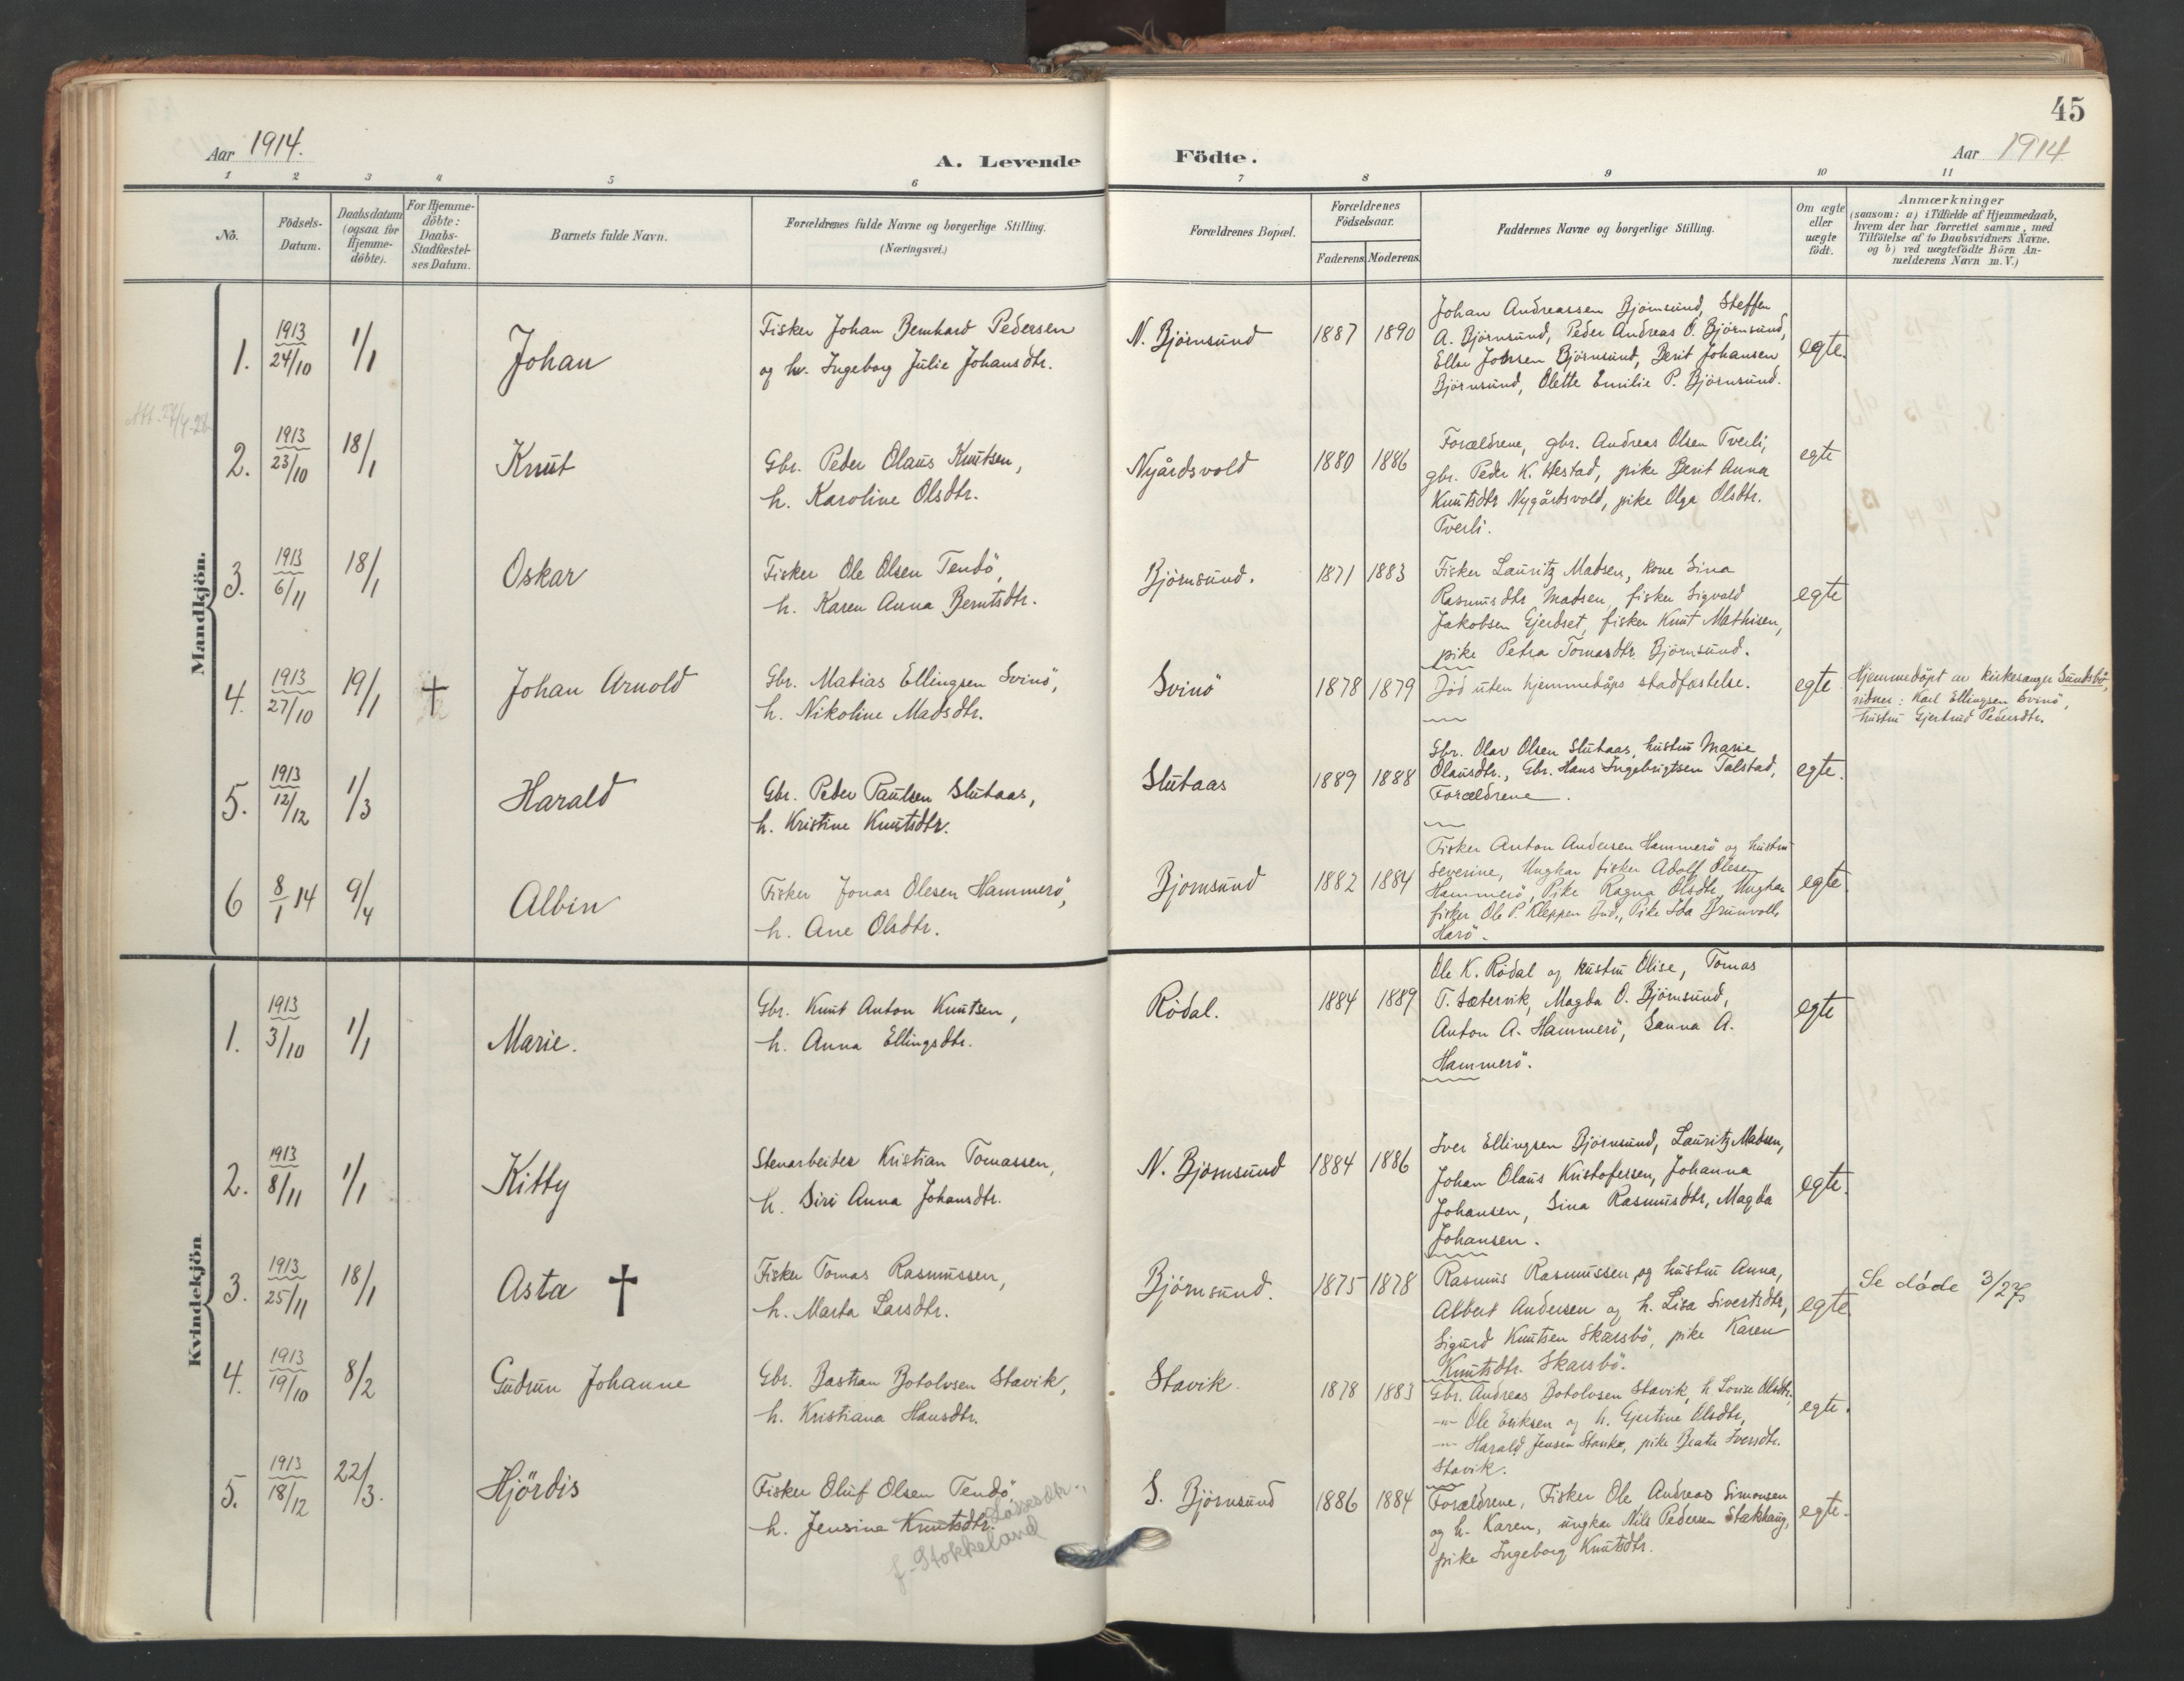 45
Aar 1914.
A. Levende Födte.
Aar 1914
1 2 3 4 5 6 7 8 9 10 11
No.
Födsels-
Datum.
Daabsdatum
(ogsaa for
Hjemme-
döbte).
For Hjemme-
döbte:
Daabs-
Stadfæstel-
ses Datum.
Barnets fulde Navn.
Forældrenes fulde Navne og borgerlige Stilling.
(Næringsvei.)
Forældrenes Bopæl.
Forældrenes
Födselsaar.
Faderens. Moderens.
Faddernes Navne og borgerlige Stilling.
Om ægte
eller
uægte
födt.
Anmærkninger
(saasom: a) i Tilfælde af Hjemmedaab,
hvem der har forrettet samme, med
Tilföielse af to Daabsvidners Navne,
og b) ved uægtefödte Börn An-
melderens Navn m. V.)
Mandkjön.
1. 1913 24/10 1/1 Johan
Fisker Johan Bernhard Pedersen
og h. Ingeborg Julie Johansdtr.
N. Björnsund 1887 1890
Johan Andreassen Björnsund, Steffen
A. Björnsund, Peder Andreas O. Björnsund,
Björnsund, Berit Johansen
Björnsund, Olette Emilie P. Björnsund.
egte.
2. 1913 23/10 18/1 Knut
Gbr. Peder Olaus Knutsen,
h. Karoline Olsdtr.
Nygårdsvold 1880 1886
Forældrene, gbr. Andreas Olsen Tverli,
gbr. Peder K. Hestad, pike Berit Anna
Knutsdtr Nygårdsvold, pike Olga Olsdtr.
Tverli.
egte
3. 1913 6/11 18/1 Oskar
Fisker Ole Olsen Tendö,
h. Karen Anna Berntsdtr.
Björnsund. 1871 1883
Fisker Lauritz Madsen, kone Sina
Rasmusdtr Madsen, fisker Sigvald
Jakobsen Gjerdset, fisker Knut Mathisen,
pike Petra Tomasdtr. Björnsund.
egte
4. 1913 27/10 19/1 † Johan Arnold
Gbr. Matias Ellingsen Svinö,
h. Nikoline Madsdtr.
Svinö 1878 1879
Död uten hjemmedåps stadfæstelse.
egte
Hjemmedöpt av kirkesanger Sundsbö,
vidner: Karl Ellingsen Svinö,
hustru Gjertrud Pedersdtr.
5. 1913 12/12 1/3 Harald
Gbr. Peder Paulsen Slutaas,
h. Kristine Knutsdtr.
Slutaas 1889 1888
Gbr. Olav Olsen Slutaas, hustru Marie
Olausdtr., Gbr. Hans Ingebrigtsen Talstad,
Forældrene.
egte.
6 8/1 14 9/4 Albin
Fisker Jonas Olesen Hammerö,
h. Ane Olsdtr.
Björnsund 1882 1884
Fisker Anton Andersen Hammerö og hustru
Severine, Ungkar fisker Adolf Olesen
Hammerö, Pike Ragna Olsdtr, Ungkar
fisker Ole P. Kleppen Pike Ida
Harö.
egte.
Kvindekjön
1. 1913 3/10 1/1 Marie.
Gbr. Knut Anton Knutsen,
h. Anna Ellingsdtr.
Rödal. 1884 1889
Ole K. Rödal og hustru Olise, Tomas
T. Sætervik, Magda O. Björnsund,
Anton A. Hammerö, Sanna A.
Hammerö.
egte
2. 1913 8/11 1/1 Kitty
Stenarbeider Kristian Tomassen,
h. Siri Anna Johansdtr.
N. Björnsund 1884 1886
Iver Ellingsen Björnsund, Lauritz Madsen,
Johan Olaus Kristofersen, Johanna
Johansen, Sina Rasmusdtr, Magda
Johansen.
egte.
3. 1913 25/11 18/1 Asta †
Fisker Tomas Rasmussen,
h. Marta Larsdtr.
Björnsund. 1875 1878
Rasmus Rasmussen og hustru Anna,
Albert Andersen og h. Lisa Sivertsdtr,
Sigurd Knutsen Skarsbö, pike Karen
Knutsdtr. Skarsbö.
egte.
Se döde 3/27
4. 1913 19/10 8/2 Gudrun Johanne
Gbr. Bastian Botolvsen Stavik,
h. Kristiana Hansdtr.
Stavik. 1878 1883
Gbr. Andreas Botolvsen Stavik, h. Lovise Olsdtr,
-"- Ole Eriksen og h. Gjertine Olsdtr,
-"- Harald Jensen pike Beate Iversdtr.
Stavik.
egte.
5. 1913 18/12 22/3. Hjördis
Fisker Oluf Olsen Tendö
h. Jensine Knutsdtr. Lössesdtr.,
f. Stokkeland
S. Björnsund 1886 1884
Forældrene, Fisker Ole Andreas Simonsen
og h. Karen, ungkar Nils Pedersen Stakhaug,
pike Ingeborg Knutsdtr.
egte.